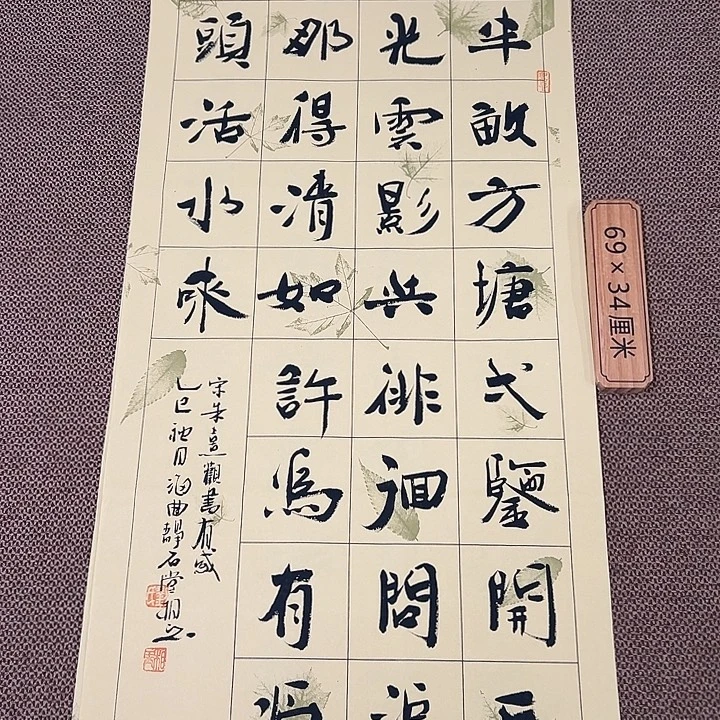 半畝方塘弌鑒開
光雲影共徘徊問
那得清如許為有
頭活水來
宋朱熹觀書有感
乙巳 月 曲靜石堂
69×34厘米